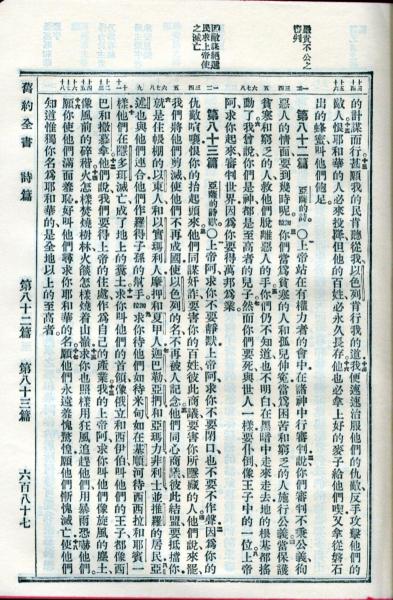 嚴責不公之
審判
民求上帝使
之滅亡
的計謀而行甚願我的民肯聽從我以色列肯行我的道我便速速治服他們的仇敵反手攻擊他們的
敵人恨耶和華的人必來投降但他的百姓必永久長存他也必拿上好的麥子給他們喫又拿從磐石
出的蜂蜜叫他們飽足
第八十二篇 亞薩的詩 ○上帝站在有權力者的會中在諸神中行審判說你們審判不秉公義徇
惡人的情面要到幾時呢細拉你們當為貧寒的人和孤兒伸冤當為困苦和窮乏的人施行公義當保護
貧寒和窮乏的人救他們脫離惡人的手你們仍不知道也不明白在黑暗中走來走去地的根基都搖
動了我曾說你們是神都是至高者的兒子然而你們要死與世人一樣要仆倒像王子中的一位上帝
阿求你起來審判世界因為你要得萬邦為業
第八十三篇 亞薩的詩歌 ○上帝阿求你不要靜默上帝阿求你不要閉口也不要不作聲因為你的
仇敵喧嚷恨你的抬起頭來他們同謀奸詐要害你的百姓彼此商議要害你所隱藏的人他們說來罷
我們將他們剪滅使他們不再成國使以色列的名不再被人記念他們同心商議彼此結盟要抵擋你
就是住帳棚的以東人和以實瑪利人摩押和夏甲人迦巴勒亞捫和亞瑪力非利士並推羅的居民亞
述也與他們連合他們作羅得子孫的幫手細拉求你待他們如待米甸如在基順河待西西拉和耶賓一
樣他們在隱多珥滅亡成了地上的糞土求你叫他們的首領像俄立和西伊伯叫他們的王子都像西
巴和撒慕拿他們說我們要得上帝的住處作為自己的產業我的上帝阿求你叫他們像旋風的塵土
像風前的碎稭火怎樣焚燒樹林火燄怎樣燒着山嶺求你也照樣用狂風追趕他們用暴雨恐嚇他們
願你使他們滿面羞恥好叫他們尋求你耶和華的名願他們永遠羞愧驚惶願他們慚愧滅亡使他們
知道惟獨你名為耶和華的是全地以上的至高者
舊約全書 詩篇 第八十二篇 第八十三篇 六百八十七